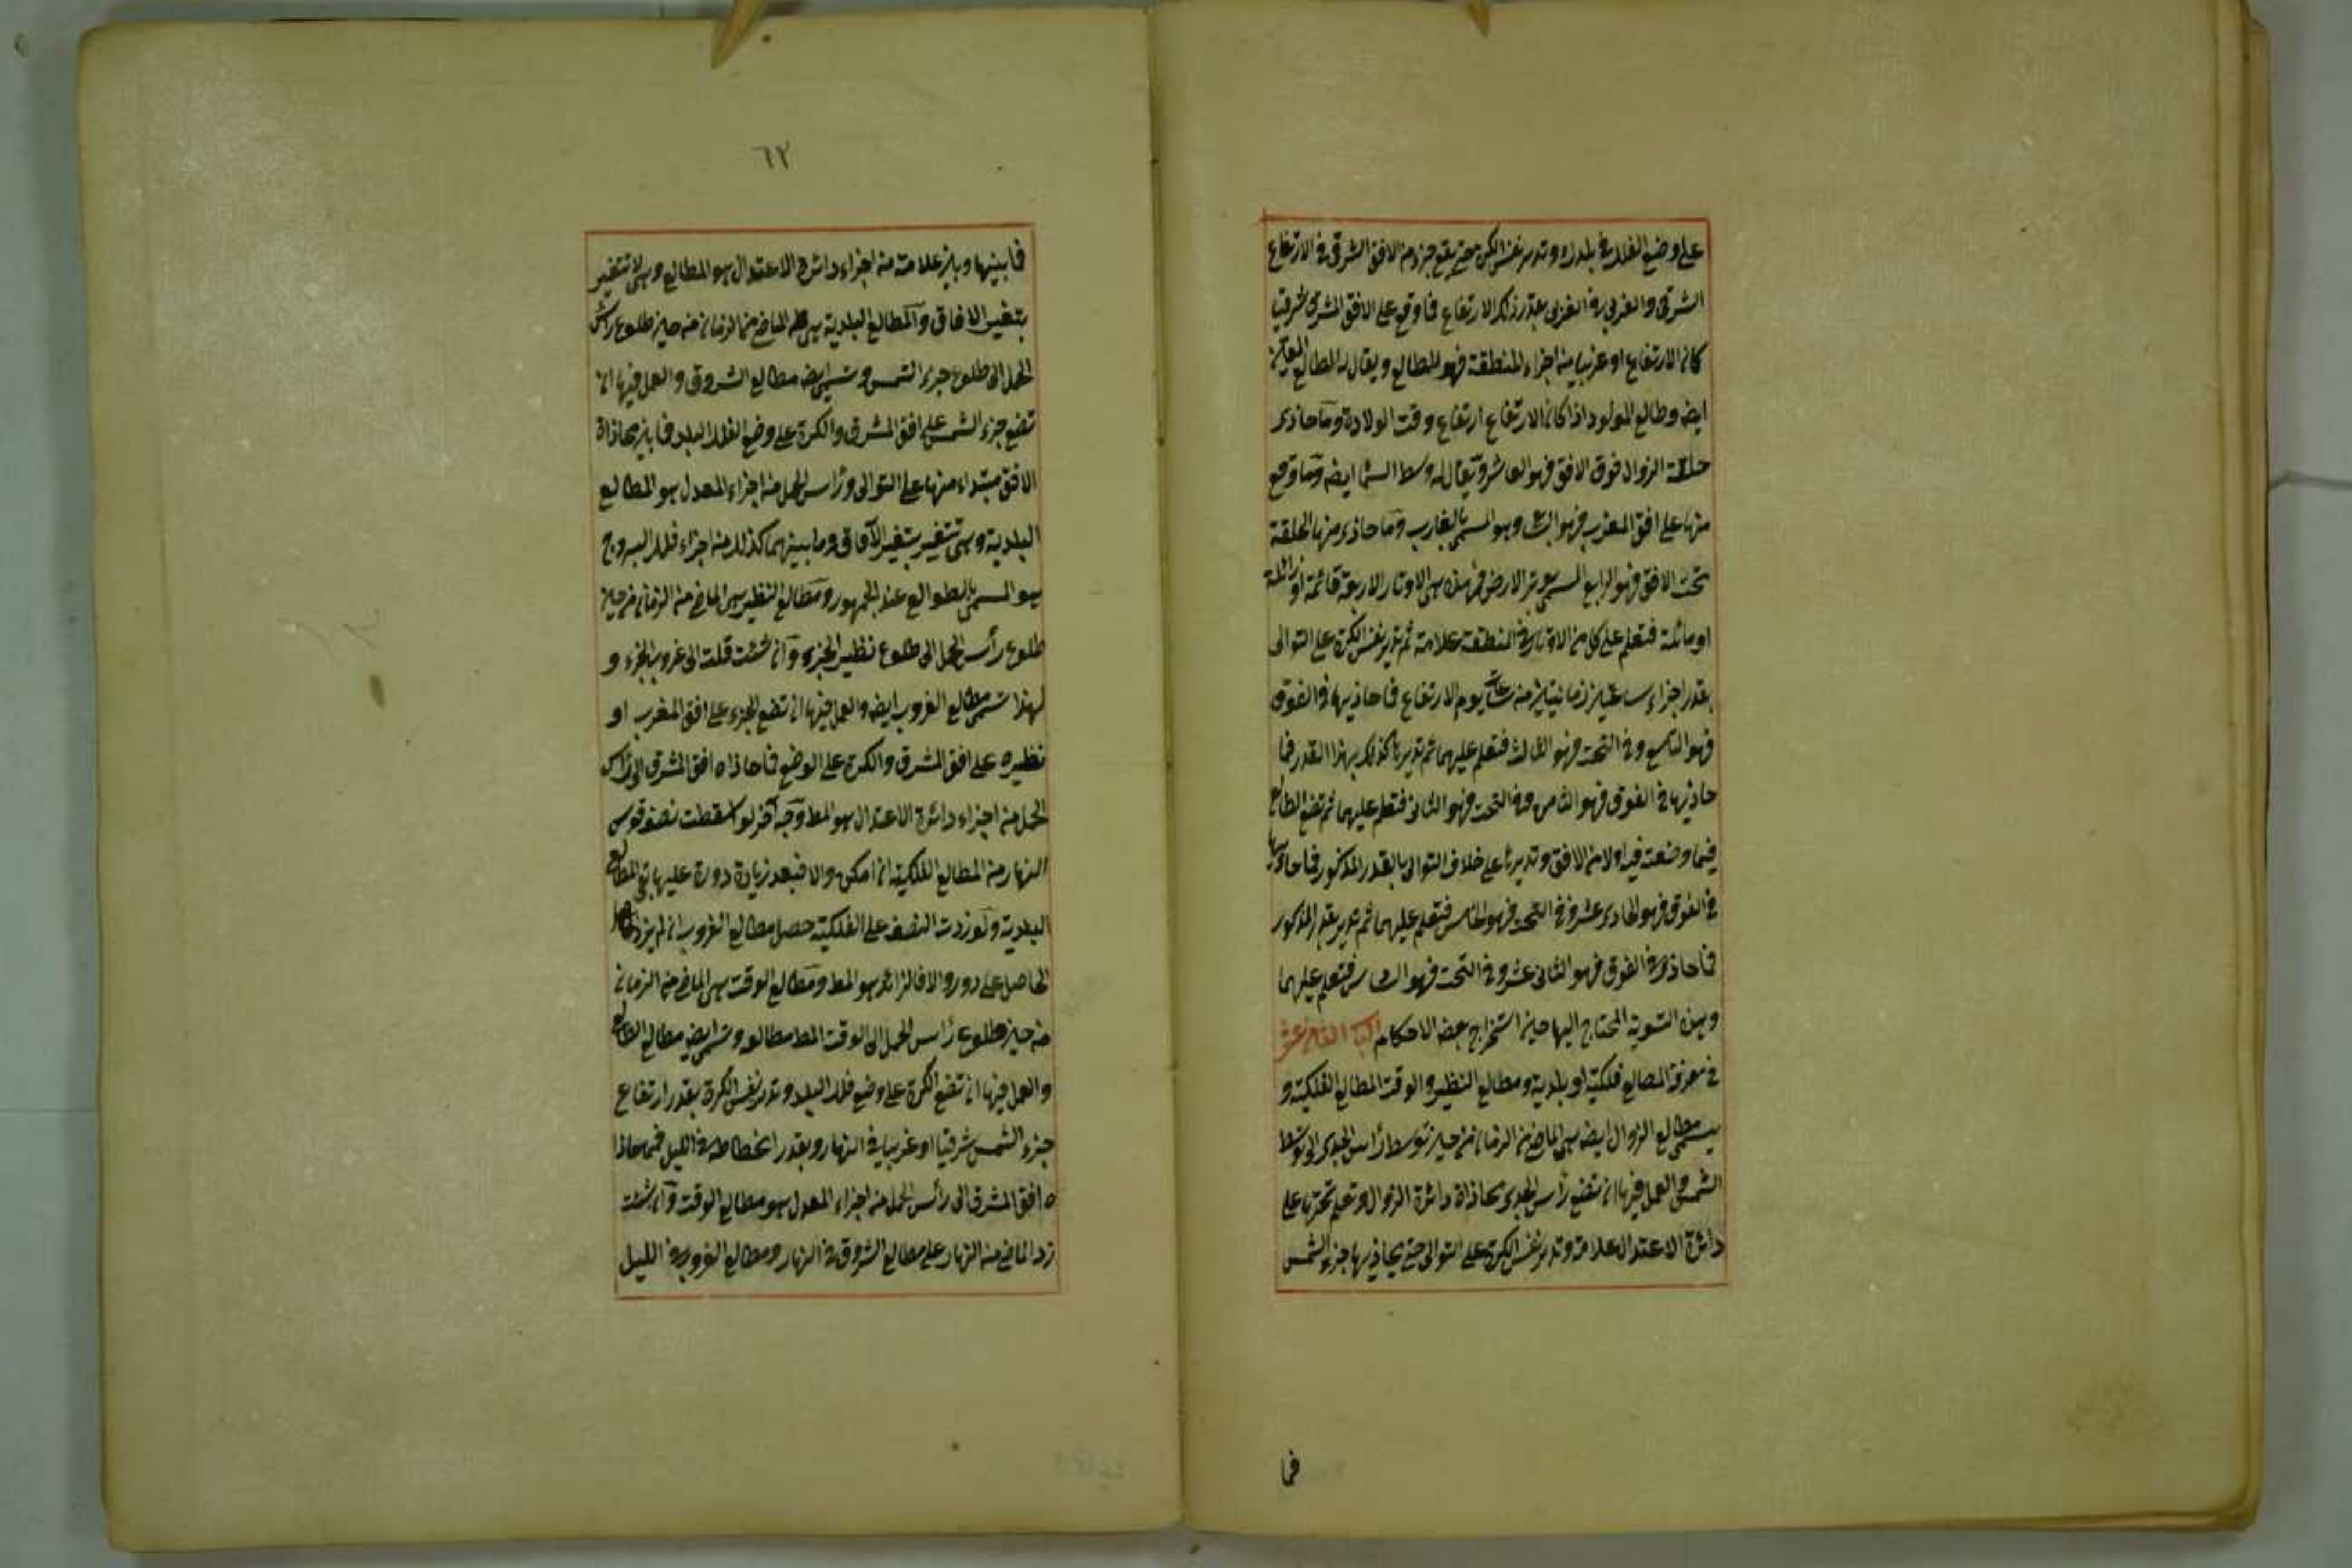 على وضع الفلك في بلدك وتدير نفس الكرة حتى يقع جزء من الافق الشرقي في الارتفاع
الشرقي والغربي في الغربي بقدر ذلك الارتفاع فما وقع على الافق المشرق شرقيا
كان الارتفاع او غربيا من اجزاء المنطقة فهو المطالع ويقال له المطالع
ايضه وطالع المولود اذا كان الارتفاع ارتفاع وقت الولادة وما حاذى
حلقة الزوال فوق الافق فهو العاشر ويقال له وسط السما ايضه وما وقع
منها على افق المغرب فهو السابع وهو المسمى بالغارب وما حاذى منها الحلقة
تحت الافق فهو الرابع المسمى بوتد الارض فهذه هي الاوتار الاربعة قائمة او زائلة
او مائلة فتعلم على كل من الاوتار في المنطقة علامة ثم تدير نفس الكرة على التوالى
بقدر اجزاء ساعتين زمانيتين من ساعات يوم الارتفاع فما حاذيها في الفوق
فهو التاسع وفي التحت فهو الثالث فتعلم عليهما ثم تديرها كذلك بهذا القدر فما
حاذيها في الفوق فهو الثامن وفي التحت فهو الثاني فتعلم عليهما ثم تضع الطالع
فيما وضعته فيه اولا من الافق وتديرها على خلاف التوالى بالقدر المذكور فما حاذى
في الفوق فهو الحادى عشر وفي التحت فهو الخامس فتعلم عليهما ثم تدير بقدر المذكور
فما حاذى في الفوق فهو الثانى عشر وفي التحت فهو السادس فتعلم عليهما
وهذه التسوية المحتاج اليها حين استخراج بعض الاحكام الباب الثاني عشر
في معرفة المطالع فلكية او بلدية ومطالع النظير والوقت المطالع الفلكية و
يسمى مطالع الزوال ايضه هى الماضى من الزمان من حين توسط رأس الجدى الى توسط
الشمس والعمل فيها ان تضع رأس الجدى بمحاذاة دائرة الزوال وتعلم تحتها على
دائرة الاعتدال علامة وتدير نفس الكرة على التوالى حتى يحاذيها جزء الشمس
فما
٦٢
فما بينها وبين علامة من اجزاء دائرة الاعتدال هو المطالع وهى لا تتغير
بتغير الافاق والمطالع البلدية هى الماضى من الزمان من حين طلوع رأس
الحمل الى طلوع جزء الشمس وتسمى ايضه مطالع الشروق والعمل فيها ان
تضع جزء الشمس على افق المشرق والكرة على وضع الفلك البلد فما بين محاذاة
الافق مبتداء منها على التوالى ورأس الحمل من اجزاء المعدل هو المطالع
البلدية وهى تتغير بتغير الآفاق وما بينهما كذلك من اجزاء فلك البروج
هو المسمى بالطوالع عند الجمهور ومطالع النظير هى الماضى من الزمان من حين
طلوع رأس الحمل الى طلوع نظير الجزء وان شئت قلت الى غروب الجزء و
لهذا تسمى مطالع الغروب ايضه والعمل فيها ان تضع الجزء على افق المغرب او
نظيره على افق المشرق والكرة على الوضع فما حاذاه افق المشرق الى رأس
الحمل من اجزاء دائرة الاعتدال هو المط وجه آخر لو اسقطت نصف قوس
النهار من المطالع الفلكية ان امكن والا فبعد زيادة دورة عليها بقى المطالع
البلدية ولو زدت النصف على الفلكية حصل مطالع الغروب ان لم يزد
الحاصل على دور والا فالزائد هو المط ومطالع الوقت هى الماضى من الزمان
من حين طلوع رأس الحمل الى الوقت المط مطالعه وتسمى ايضه مطالع الطالع
والعمل فيها ان تضع الكرة على وضع فلك البلد وتدير نفس الكرة بقدر ارتفاع
جزء الشمس شرقيا او غربيا في النهار وبقدر انحطاطه في الليل فما حاذا
ه افق المشرق الى رأس الحمل من اجزاء المعدل هو مطالع الوقت وان شئت
زد الماضى من النهار على مطالع الشروق في النهار ومطالع الغروب في الليل